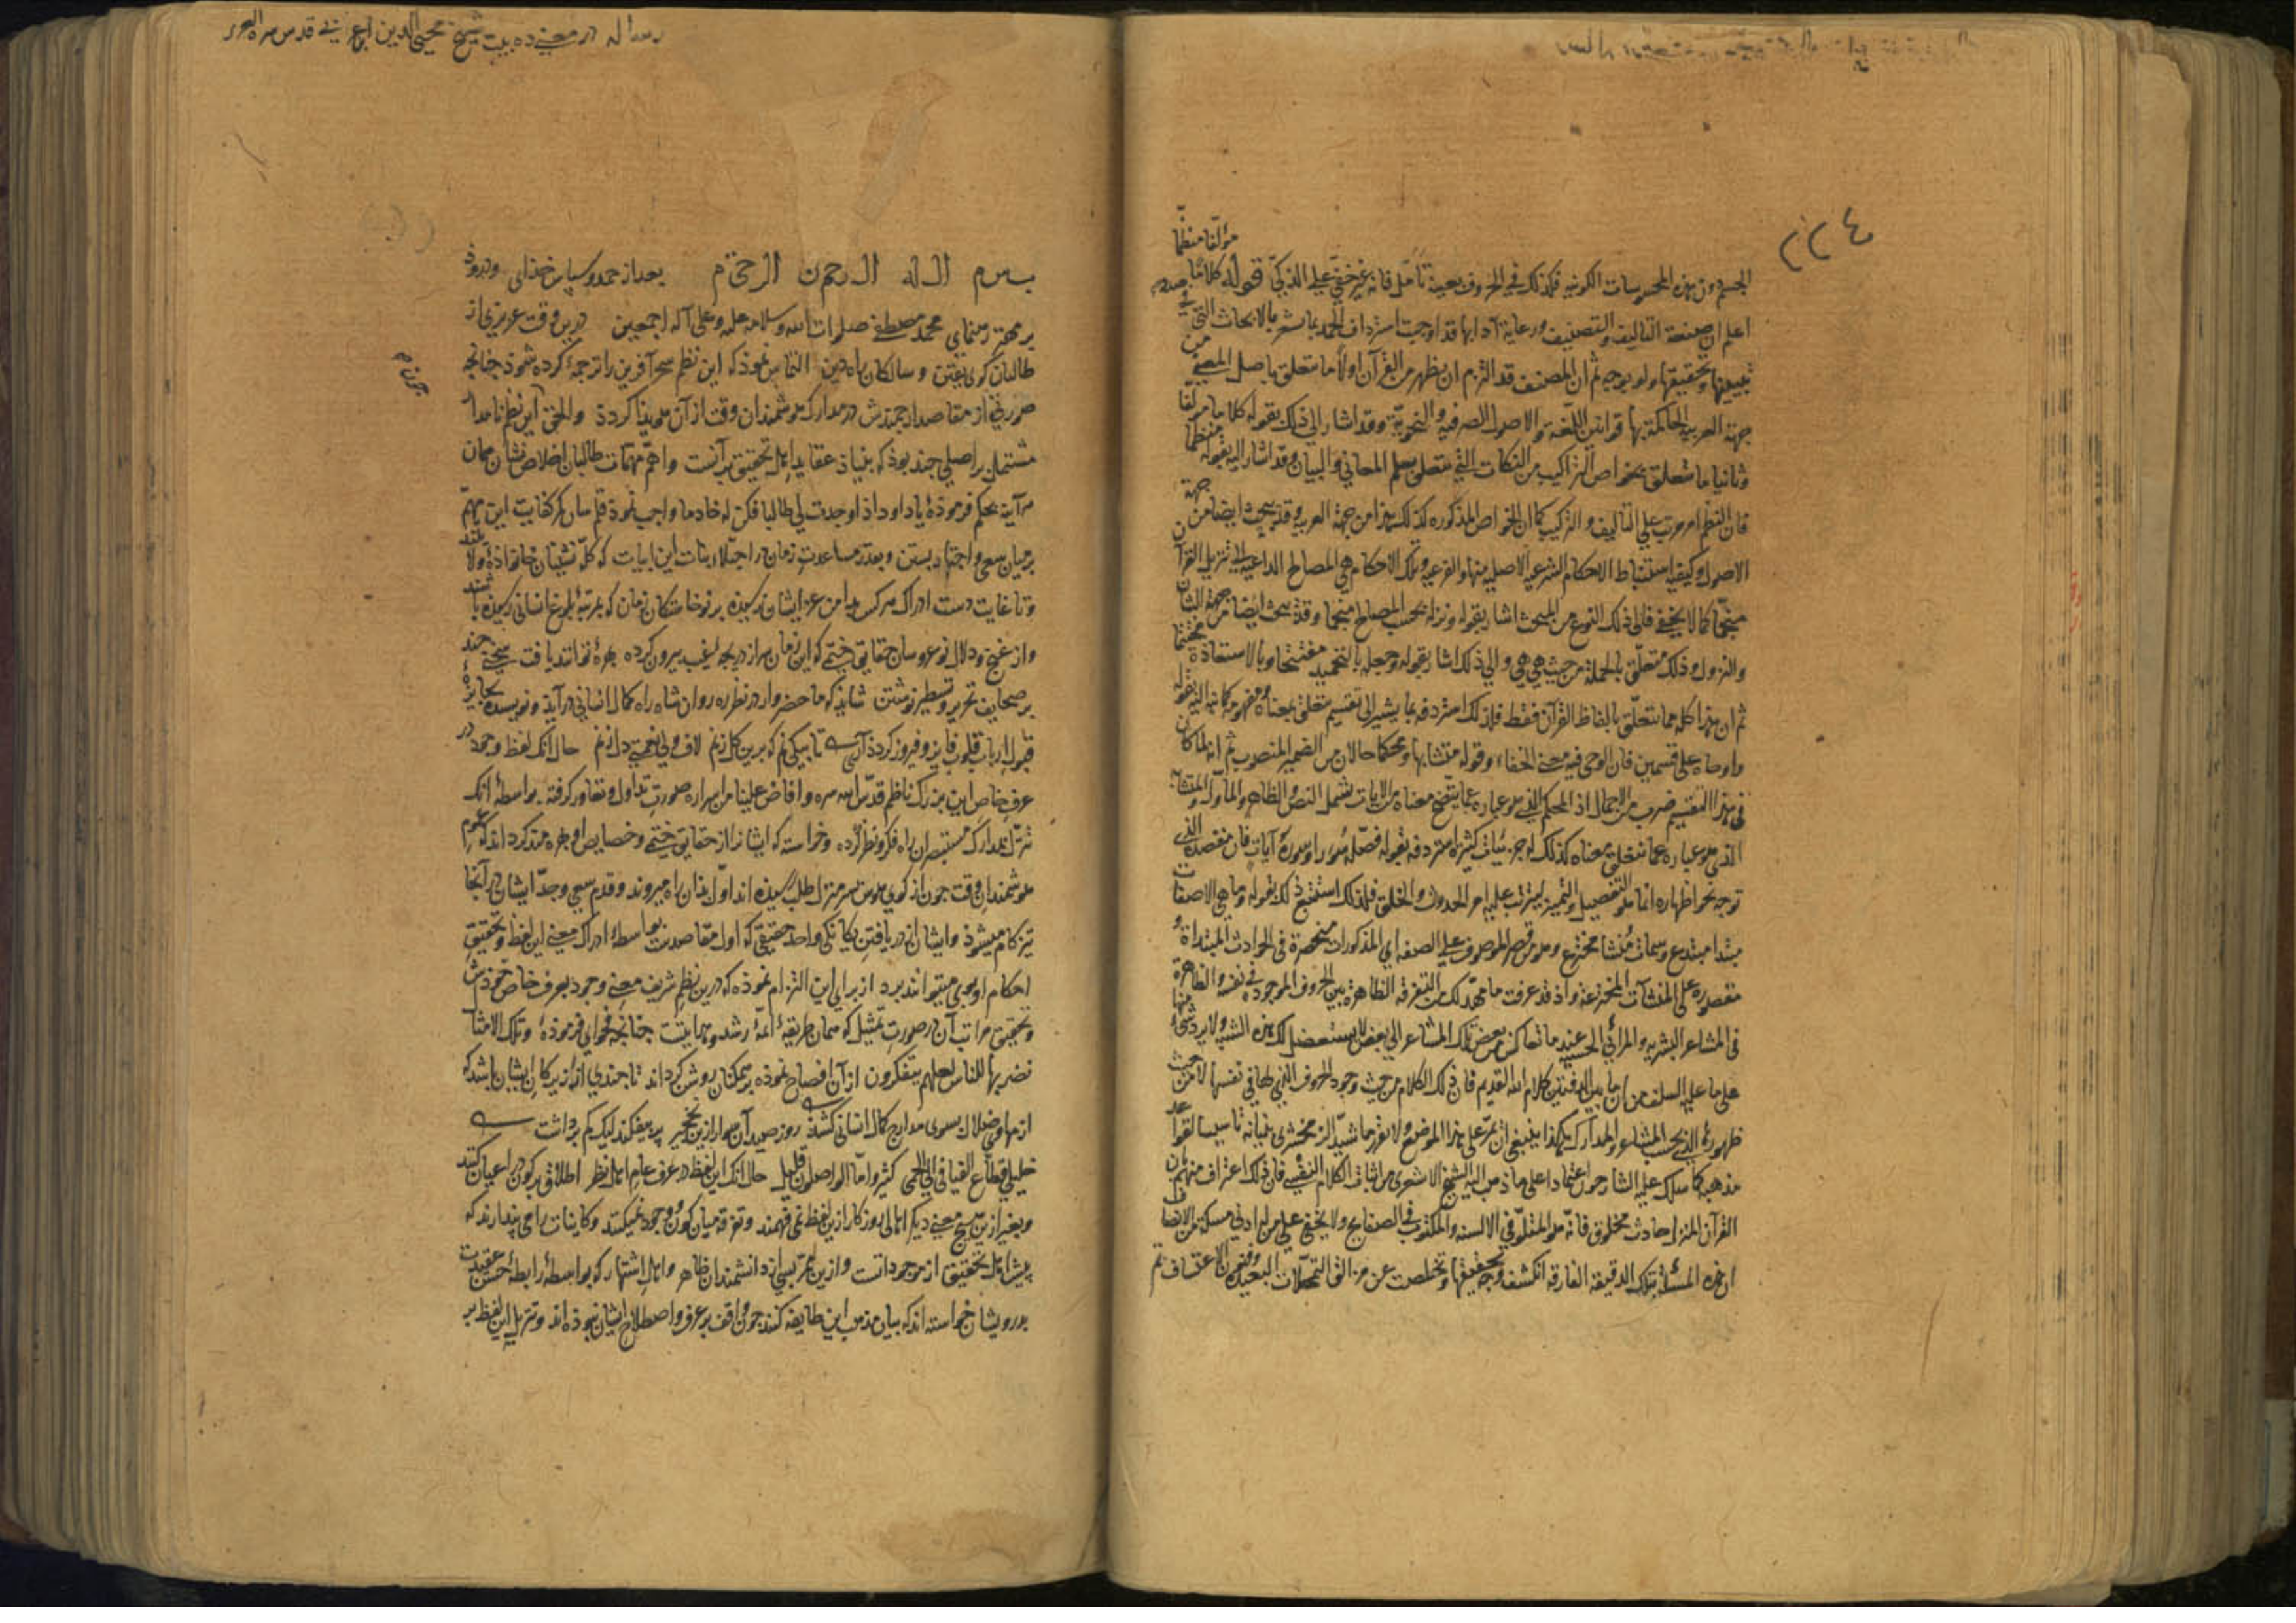 ٢٢٤
مؤلفا منظما
الجسم دون هذه المحسوسات الكونيه فكذلك في الحروف بعينه تأمل فانه غير خفي على الذكي قوله كلاما
اعلم ان صنعة التاليف والتصنيف ورعاية آدابها قد اوجبت استرداف الحمد بما يشعر بالابحاث التي في صدد
تبيينها وتحقيقها ولو بوجه ثم ان المصنف قد التزم ان يظهر من القرآن اولا ما متعلق باصل المعنى من
جهة العربية الحاكمة بها قوانين اللغة والاصول الصرفية والنحوية وقد اشار الى ذلك بقوله كلاما مؤلفا
وثانيا ما متعلق بخواص التراكيب من النكات التي متعلق بعلم المعاني والبيان وقد اشار اليه بقوله منظما
فان النظم امر مرتب على التاليف والتركيب كما ان الخواص المذكوره كذلك هذا من جهة العربيه وقد بحث ايضا من جهة
الاصول وكيفيه استنباط الاحكام الشرعيه الاصليه منها والفرعيه وتلك الاحكام هي المصالح الداعيه الى تنزيل القرآن
منجما كما لا يخفى فالى ذلك النوع من المبحث اشار بقوله ونزله بحسب المصالح منجما وقد بحث ايضا من جهة الشان
والنزول وذلك متعلق بالجملة من حيث هي هي والى ذلك اشار بقوله وجعله بالتحميد مفتتحا وبالاستعاذة مختتما
ثم ان هذا كله مما متعلق بالفاظ القرآن فقط فلذلك استردفه بما يشير الى تقسيم متعلق بمعناه ومفهومه كما نبه اليه بقوله
واوحاه على قسمين فان الوحى فيه معنى الخفاء وقوله متشابها ومحكما حالان من الضمير المنصوب ثم انه لما كان
في هذا التقسيم ضرب من الاجمال اذ المحكم الذي هو عباره عما يتضح معناه من الايات يشمل النص والظاهر والمأول والمتشابه
الذي هو عباره عما متعلق بمعناه كذلك له جزئيات كثيره استردفه بقوله فصله سورا وسوره آيات فان مقصده الذي
توجه نحو اظهاره انما هو التفصيل والتمييز ليترتب عليه امر الحدوث والخلق فلذلك استنتج ذلك بقوله وما هي الا صفات
مبتدا مبتدع وسمات منشا مخترع وهو من قصر الموصوف على الصفه اي المذكورات منحصرة في الحوادث المبتداة و
مقصوره على المنشآت المخترعة واذ قد عرفت ما مهد لك من التفرقه الظاهرة بين الحروف الموجوده في نفسه والظاهرة
في المشاعر البشريه والمرائي الحسيه عند ما تعاكس من بعض تلك المشاعر الى بعض لا يستعضل لك هذه الشبه ولا يرد شئ منها
على ما عليه السلف من ان ما بين الدفتين كلام الله القديم فان ذلك الكلام من حيث وجود الحروف التي لها في نفسها لا من حيث
ظهوره الذي بحسب المشاعر والمدارك هكذا ينبغي ان تمر على هذا الموضع ولا تغر ما شيد الزمخشري بنيانه تاسيسا لقواعد
مذهبه كما سلك عليه الشارحون اعتمادا على ما ذهب اليه الشيخ الاشعري من اثبات الكلام النفسي فان ذلك اعتراف منهم بان
القرآن المنزل حادث مخلوق فانه هو المتلو في الالسنه والمكتوب في الصفايح ولا يخفى على من له ادنى مسكة من الانصاف
ان هذه المسئلة بتلك الدقيقة الفارقه انكشف وجه تحقيقها وتخلصت عن مزالق التمحلات البعيدة وفنون الاعتساف تم
رساله در معنى ده بيت شيخ محيي الدين ابن عربي قدس سره العزيز
بسم الله الرحمن الرحيم بعد از حمد و سپاس خداى و درود
بر مهتر رهنماى محمد مصطفى صلوات الله وسلامه عليه وعلى آله اجمعين درين وقت عزيزى از
طالبان كوى يقين و سالكان راه دين التماس نمود كه اين نظم سحر آفرين را ترجمه كرده شود چنانچه
صورتى از مقاصد ارجمندش در مدارك هوشمندان وقت از آن هويدا كردد والحق اين نظم نامدار چون
مشتمل بر اصلى چند بود كه بنياد عقايد اهل تحقيق بر آنست واهم مهمات طالبان اخلاص نشان همان
هرآينه بحكم فرموده يا داود اذا وجدت لي طالبا فكن له خادما واجب نمود قلم سان كمر كفايت اين مهم
بر ميان سعى و اجتهاد بستن و بقدر مساعدت زمان در اجتلاء بنات اين ابيات كه كله نشينان خانواده ولايتند
و تا غايت دست ادراك هر كس بدامن عز ايشان نرسيده بر نوخاستكان زمان كه بمرتبه بلوغ انسانى رسيده باشند
و از غنج و دلال نو عروسان حقايق ختمى كه اين زمان سر از دريچه غيب بيرون كرده بهره توانند يافت سخنى چند
بر صحايف تحرير و تسطير نوشتن شايد كه ما حضروار در نظر ره روان شاه راه كمال انسانى در آيد و نويسنده بجايزه
قبول ارباب قلوب فايز و فيروز كردد تا بيكى دم كه برين كل زنم لاف ولى نعمتى دل زنم حال آنكه لفظ وجود در
عرف خاص اين بزرك ناظم قدس الله سره و افاض علينا من اسراره صورت تداول و تعاور كرفته بواسطه آنكه
تنزل بمدارك مستبصران راه فكر و نظر كرده و خواسته كه ايشانرا از حقايق ختمى و خصايص او بهره مند كرداند كه عموم
هوشمندان وقت چون از كوى هوس سر منزل طلب رسيده اند اول بدان راه ميروند و قدم سعى و جد ايشان در آنجا
تيزكام ميشود و ايشان از دريافتن يكانكى واحد حقيقى كه اول مقاصدست بواسطه ادراك معنى اين لفظ و تحقيق
احكام او بويى ميتوانند برد از براى اين التزام نموده كه درين نظم شريف معنى وجود بعرف خاص خودش
و تحقيق مراتب آن در صورت تمثيل كه همان طريقه ائمه رشد و هدايتست چنانچه فحواى فرموده و تلك الامثال
نضربها للناس لعلهم يتفكرون از آن افصاح نموده بر همكنان روشن كرداند تا چندى از زيركان ايشان باشد كه
از مهاوى ضلال بسوى مدارج كمال انسانى كشد روز صيد آن سوار ازين نخجير پر بيفكند ليك كم برداشت
خليلي قطاع الفيافي الى الحمى كثير واما الواصلون قليل حال آنكه اين لفظ در عرف عام اهل نظر اطلاق بر كون در اعيان كنند
و بغير ازين هيچ معنى ديكر اهالى روزكار ازين لفظ نمى فهمند و تفرقه ميان كون و وجود نميكنند و كاينات را مى پندارند كه
پيش اهل تحقيق از موجوداتست و ازين ممر بسى از دانشمندان ظاهر و اهل اشتهار كه بواسطه رابطه حسن عقيدت
بدرويشان خواسته اند كه بيان مذهب اين طايفه كنند چون واقف بر عرف و اصطلاح ايشان نبوده اند و تنزيل اين لفظ بر